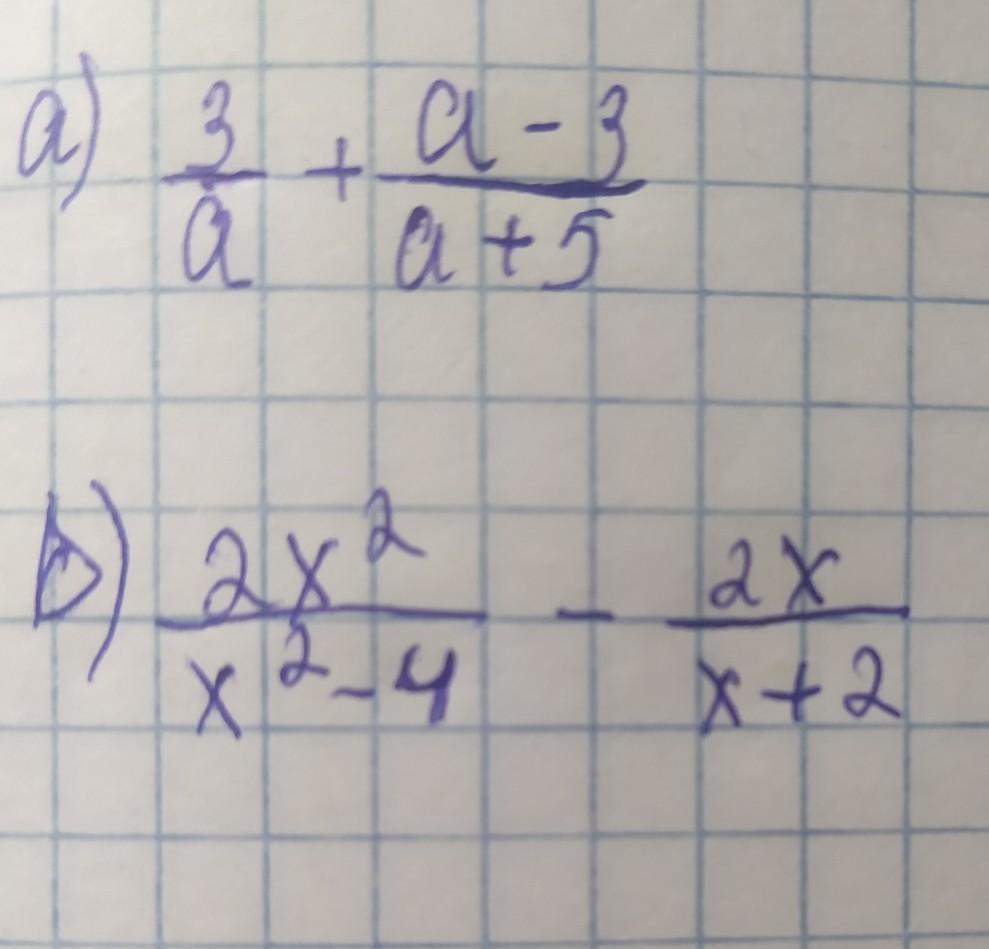 a) 3/a + (a - 3)/(a + 5)
b) 2x²/(x² - 4) - 2x/(x + 2)